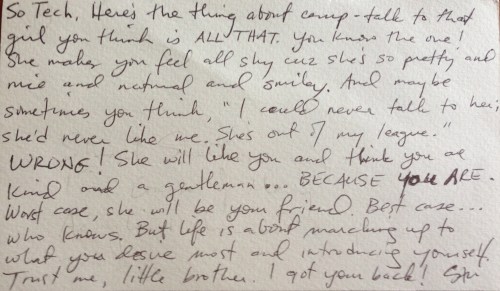 So Tech, Here's the thing about camp - talk to that
girl you think is ALL THAT. You know the one!
She makes you feel all shy cuz she's so pretty and
nice and natural and smiley. And maybe
sometimes you think, "I could never talk to her;
she'd never like me. She's out of my league."
WRONG! She will like you and think you are
kind and a gentleman... BECAUSE YOU ARE.
Worst case, she will be your friend. Best case...
who knows. But life is about marching up to
what you desire most and introducing yourself.
Trust me, little brother. I got your back!